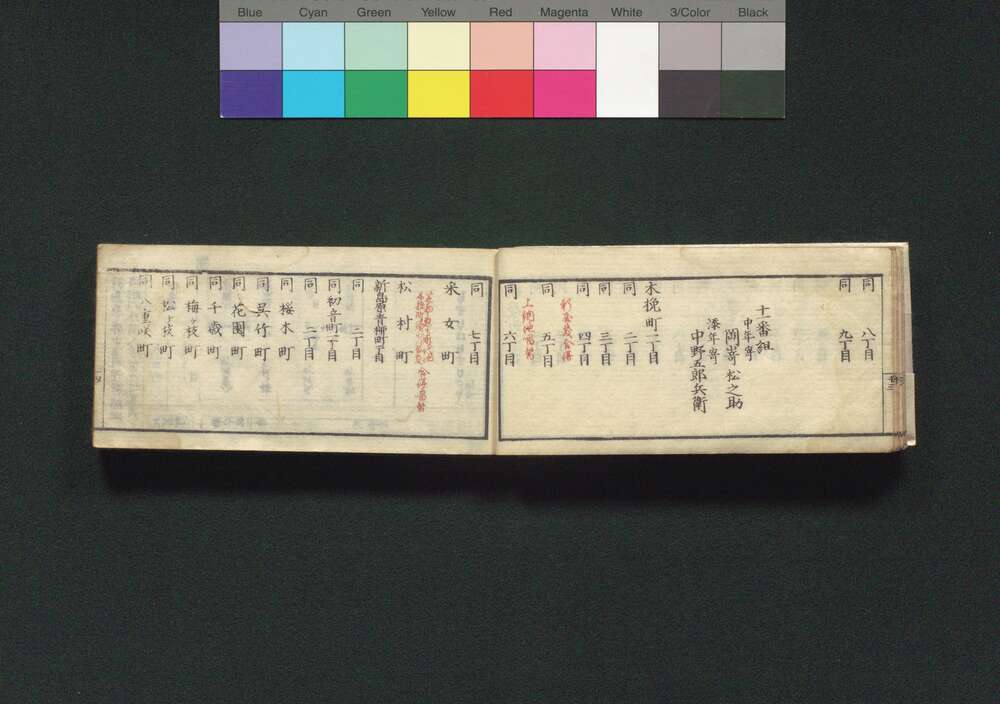 Blue Cyan Green Yellow Red Magenta White 3/Color Black
同 八丁目
同 九丁目
十一番組
中年寄
岡嵜松之助
添年寄
中野五郎兵衛
木挽町一丁目
同 二丁目
同 三丁目
同 四丁目
同 五丁目
同 六丁目
同 七丁目
采女町
松村町
同 二丁目
同 初音町一丁目
同 二丁目
同 桜木町
同 呉竹町
同 花園町
同 千歳町
同 梅ヶ枝町
同 松ヶ枝町
同 八重咲町